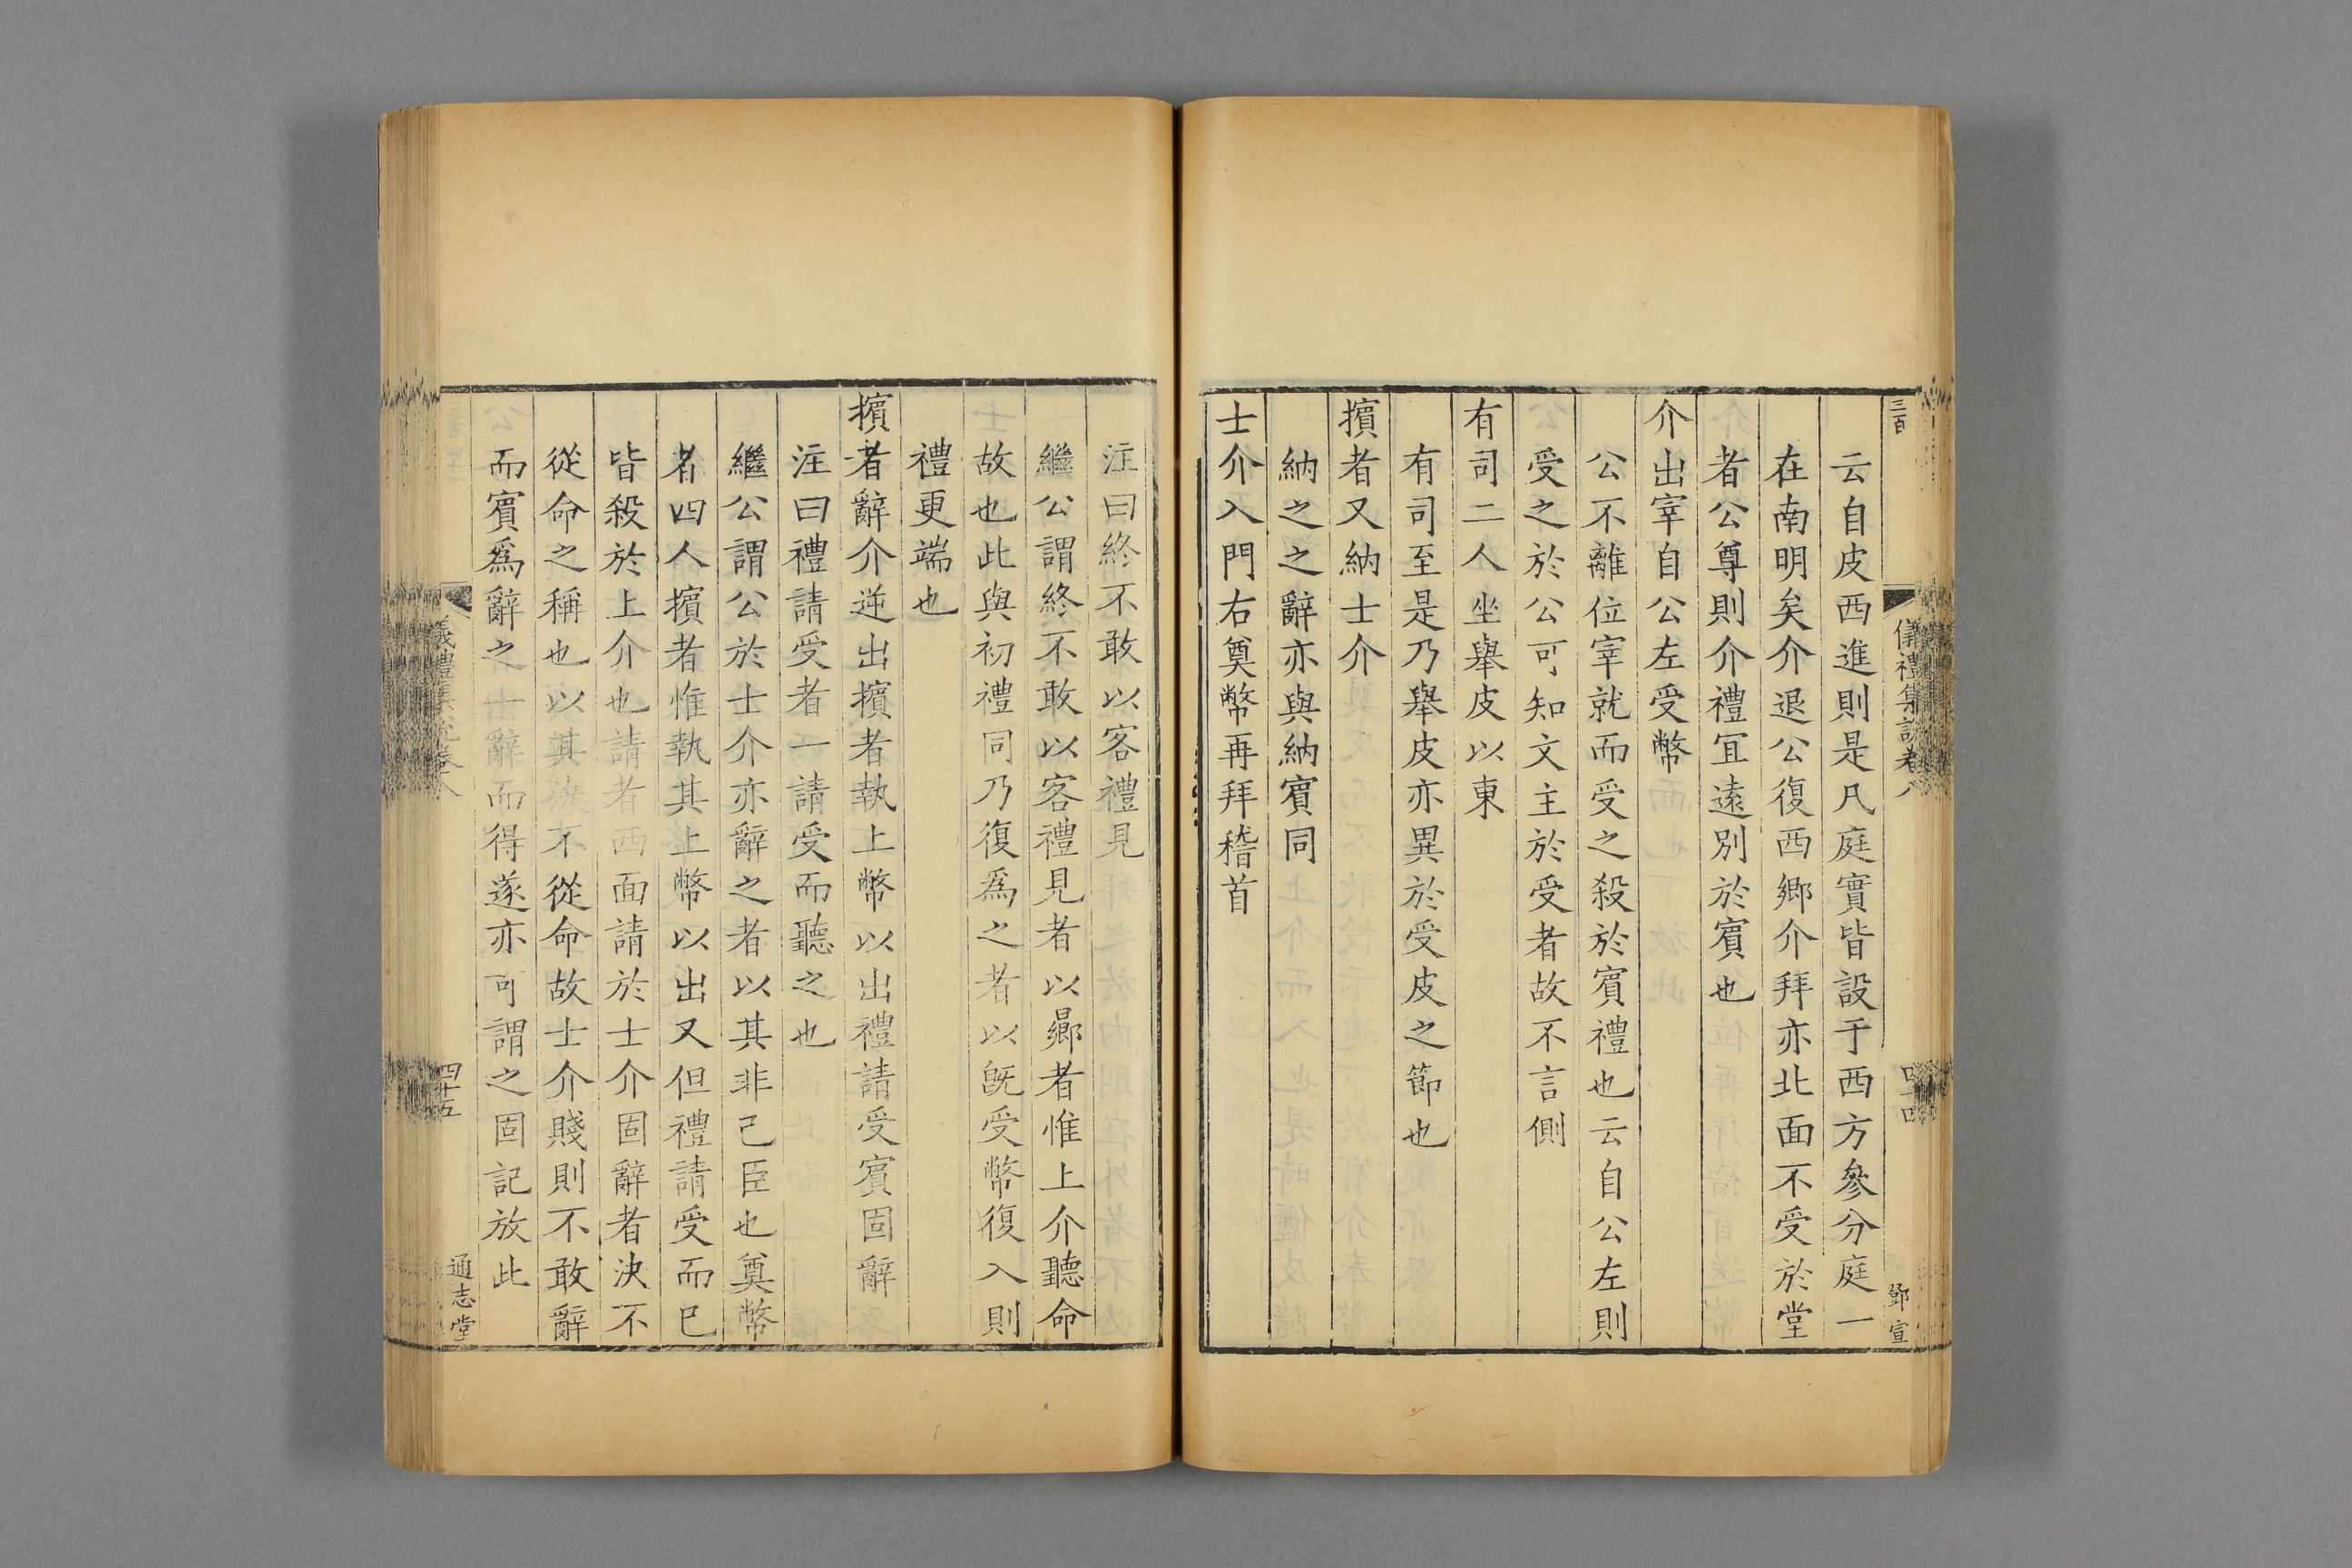 三百
儀禮集說卷八
四十四
鄧宣
云自皮西進則是凡庭實皆設于西方參分庭一
在南明矣介退公復西鄉介拜亦北面不受於堂
者公尊則介禮宜遠別於賓也
介出宰自公左受幣
公不離位宰就而受之殺於賓禮也云自公左則
受之於公可知文主於受者故不言側
有司二人坐舉皮以東
有司至是乃舉皮亦異於受皮之節也
擯者又納士介
納之之辭亦與納賓同
士介入門右奠幣再拜稽首
注曰終不敢以客禮見
繼公謂終不敢以客禮見者以曏者惟上介聽命
故也此與初禮同乃復爲之者以旣受幣復入則
禮更端也
擯者辭介逆出擯者執上幣以出禮請受賓固辭
注曰禮請受者一請受而聽之也
繼公謂公於士介亦辭之者以其非己臣也奠幣
者四人擯者惟執其上幣以出又但禮請受而已
皆殺於上介也請者西面請於士介固辭者決不
從命之稱也以其決不從命故士介賤則不敢辭
而賓爲辭之一辭而得遂亦可謂之固記放此
儀禮集說卷八
四十五
通志堂